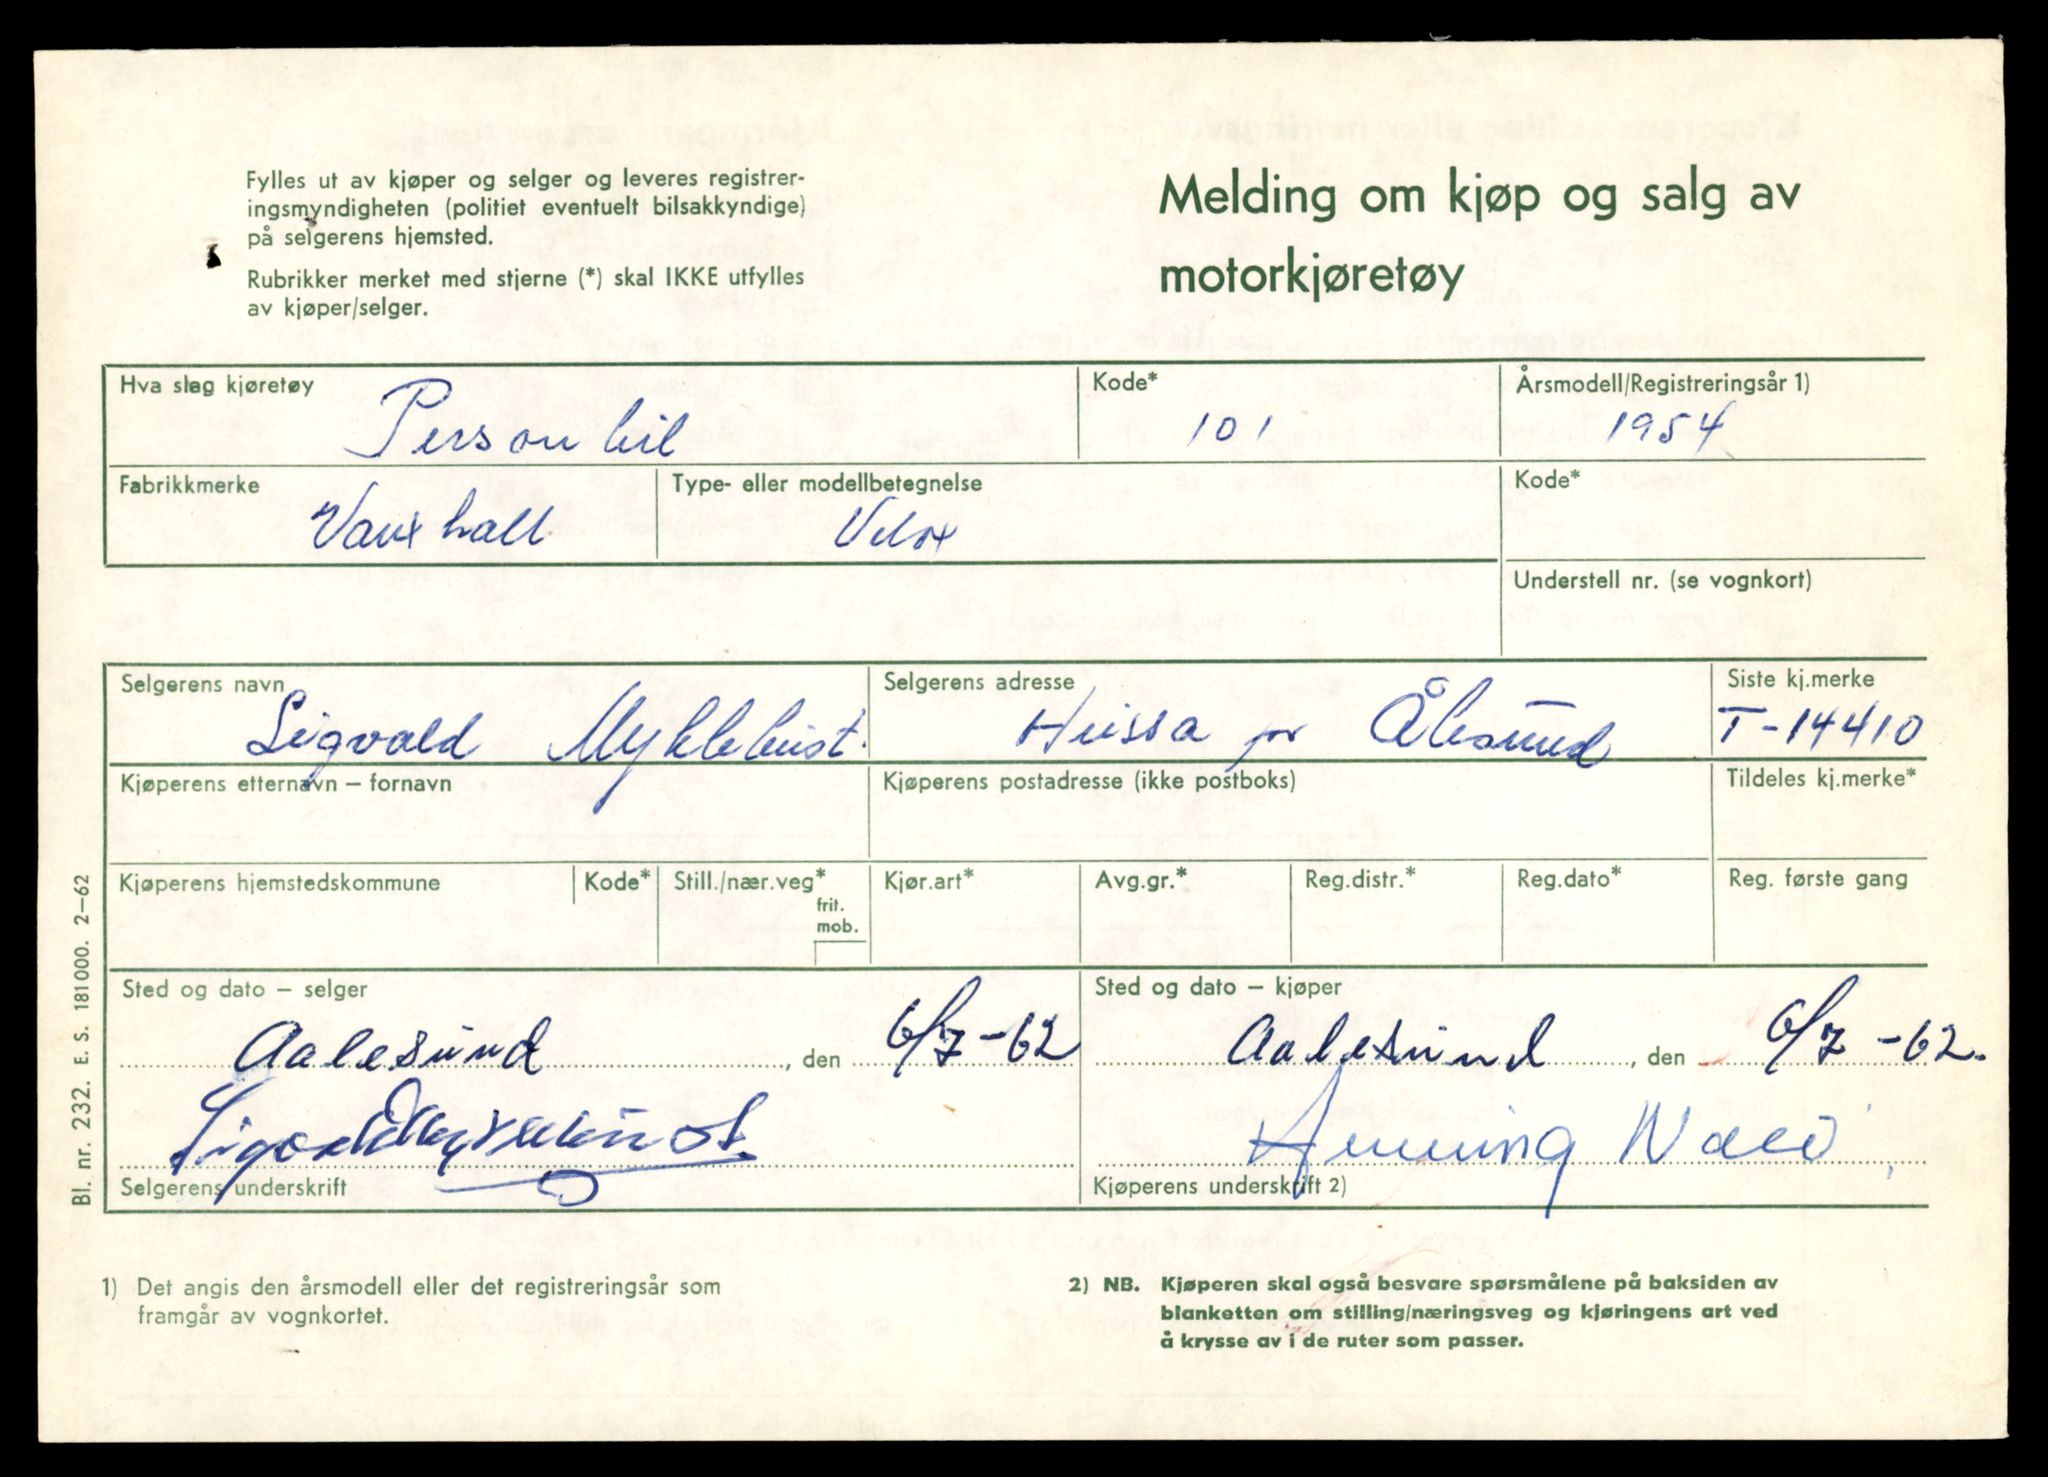 Fylles ut av kjøper og selger og leveres registrer-
ingsmyndigheten (politiet eventuelt bilsakkyndige)
på selgerens hjemsted.
Rubrikker merket med stjerne (*) skal IKKE utfylles
av kjøper/selger.
Melding om kjøp og salg av
motorkjøretøy
Hva slag kjøretøy
Personbil
Kode*
101
Årsmodell/Registreringsår 1)
1954
Fabrikkmerke
Vauxhall
Type- eller modellbetegnelse
Velox
Kode*
Understell nr. (se vognkort)
Selgerens navn
Sigvald Myklebust.
Selgerens adresse
Hessa pr Ålesund
Siste kj.merke
T-14410
Kjøperens etternavn – fornavn
Kjøperens postadresse (ikke postboks)
Tildeles kj.merke*
Kjøperens hjemstedskommune
Kode*
Still./nær.veg*
frit.
mob.
Kjør.art*
Avg.gr.*
Reg.distr.*
Reg.dato*
Reg. første gang
Sted og dato – selger
Aalesund, den 6/7-62
Sigvald Myklebust
Selgerens underskrift
Sted og dato – kjøper
Aalesund, den 6/7-62.
Kjøperens underskrift 2)
Bl. nr. 232. E. S. 181000. 2–62
1) Det angis den årsmodell eller det registreringsår som
framgår av vognkortet.
2) NB. Kjøperen skal også besvare spørsmålene på baksiden av
blanketten om stilling/næringsveg og kjøringens art ved
å krysse av i de ruter som passer.